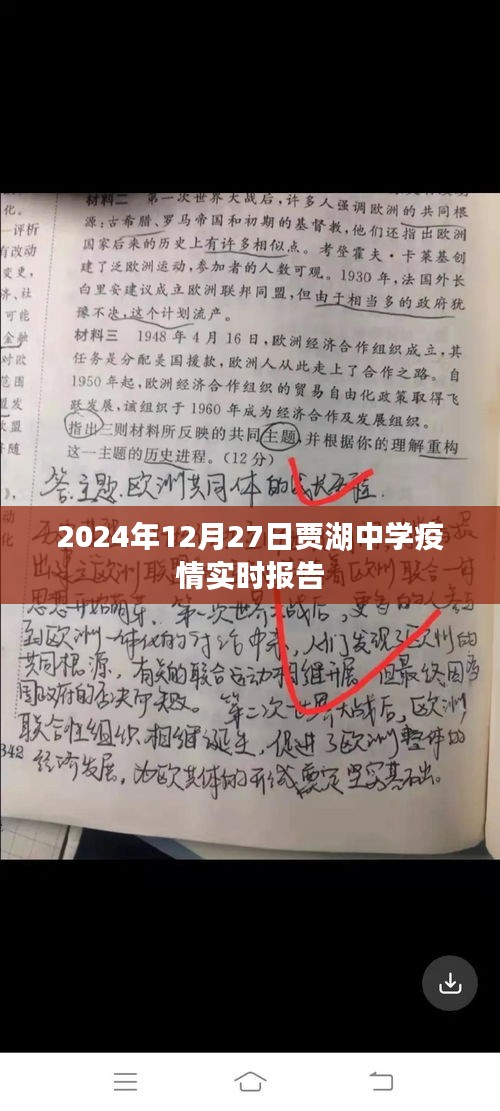 化。
—评析
有改动
变更,
济、社
可能
金融
对欧
范围
盟发
欧盟
并随
材料二 第一次世界大战后,许多人强调欧洲的共同根
源:古希腊、罗马帝国和初期的基督教,他们还指出欧洲
国家后来的历史上有许多相似点。考登霍夫·卡莱基创
建了泛欧洲运动,参加者的人数可观。1930年,法国外长
白里安建议成立欧洲联邦同盟,但由于相当多的政府犹
豫不决,这个计划流产。
材料三 1948年4月16日,欧洲经济合作组织成立,其
任务是分配美国援款,欧洲人从此走上了合作之路。自
1950年起,欧洲经济合作组织的贸易自由化政策取得飞
跃发展,该组织于1960年成为经济合作及发展组织。
指出三则材料所反映的共同主题,并根据你的理解重构
这一主题的历史进程。(12分)
答:主题:欧洲共同体的成长历程.
2024年12月27日贾湖中学疫
情实时报告
思想开始萌芽。第一次世界大战后,更多的人参与
到欧洲一体化的讨论中来,人们发现了欧洲的
共同根源,有关的联合运动相继开展,但最终因多
国政府的否决而失败。第二次世界大战后,欧洲
联合性组织相继诞生,促进了欧洲整体的
经济发展,为欧共体的形成奠定坚实基础。
342